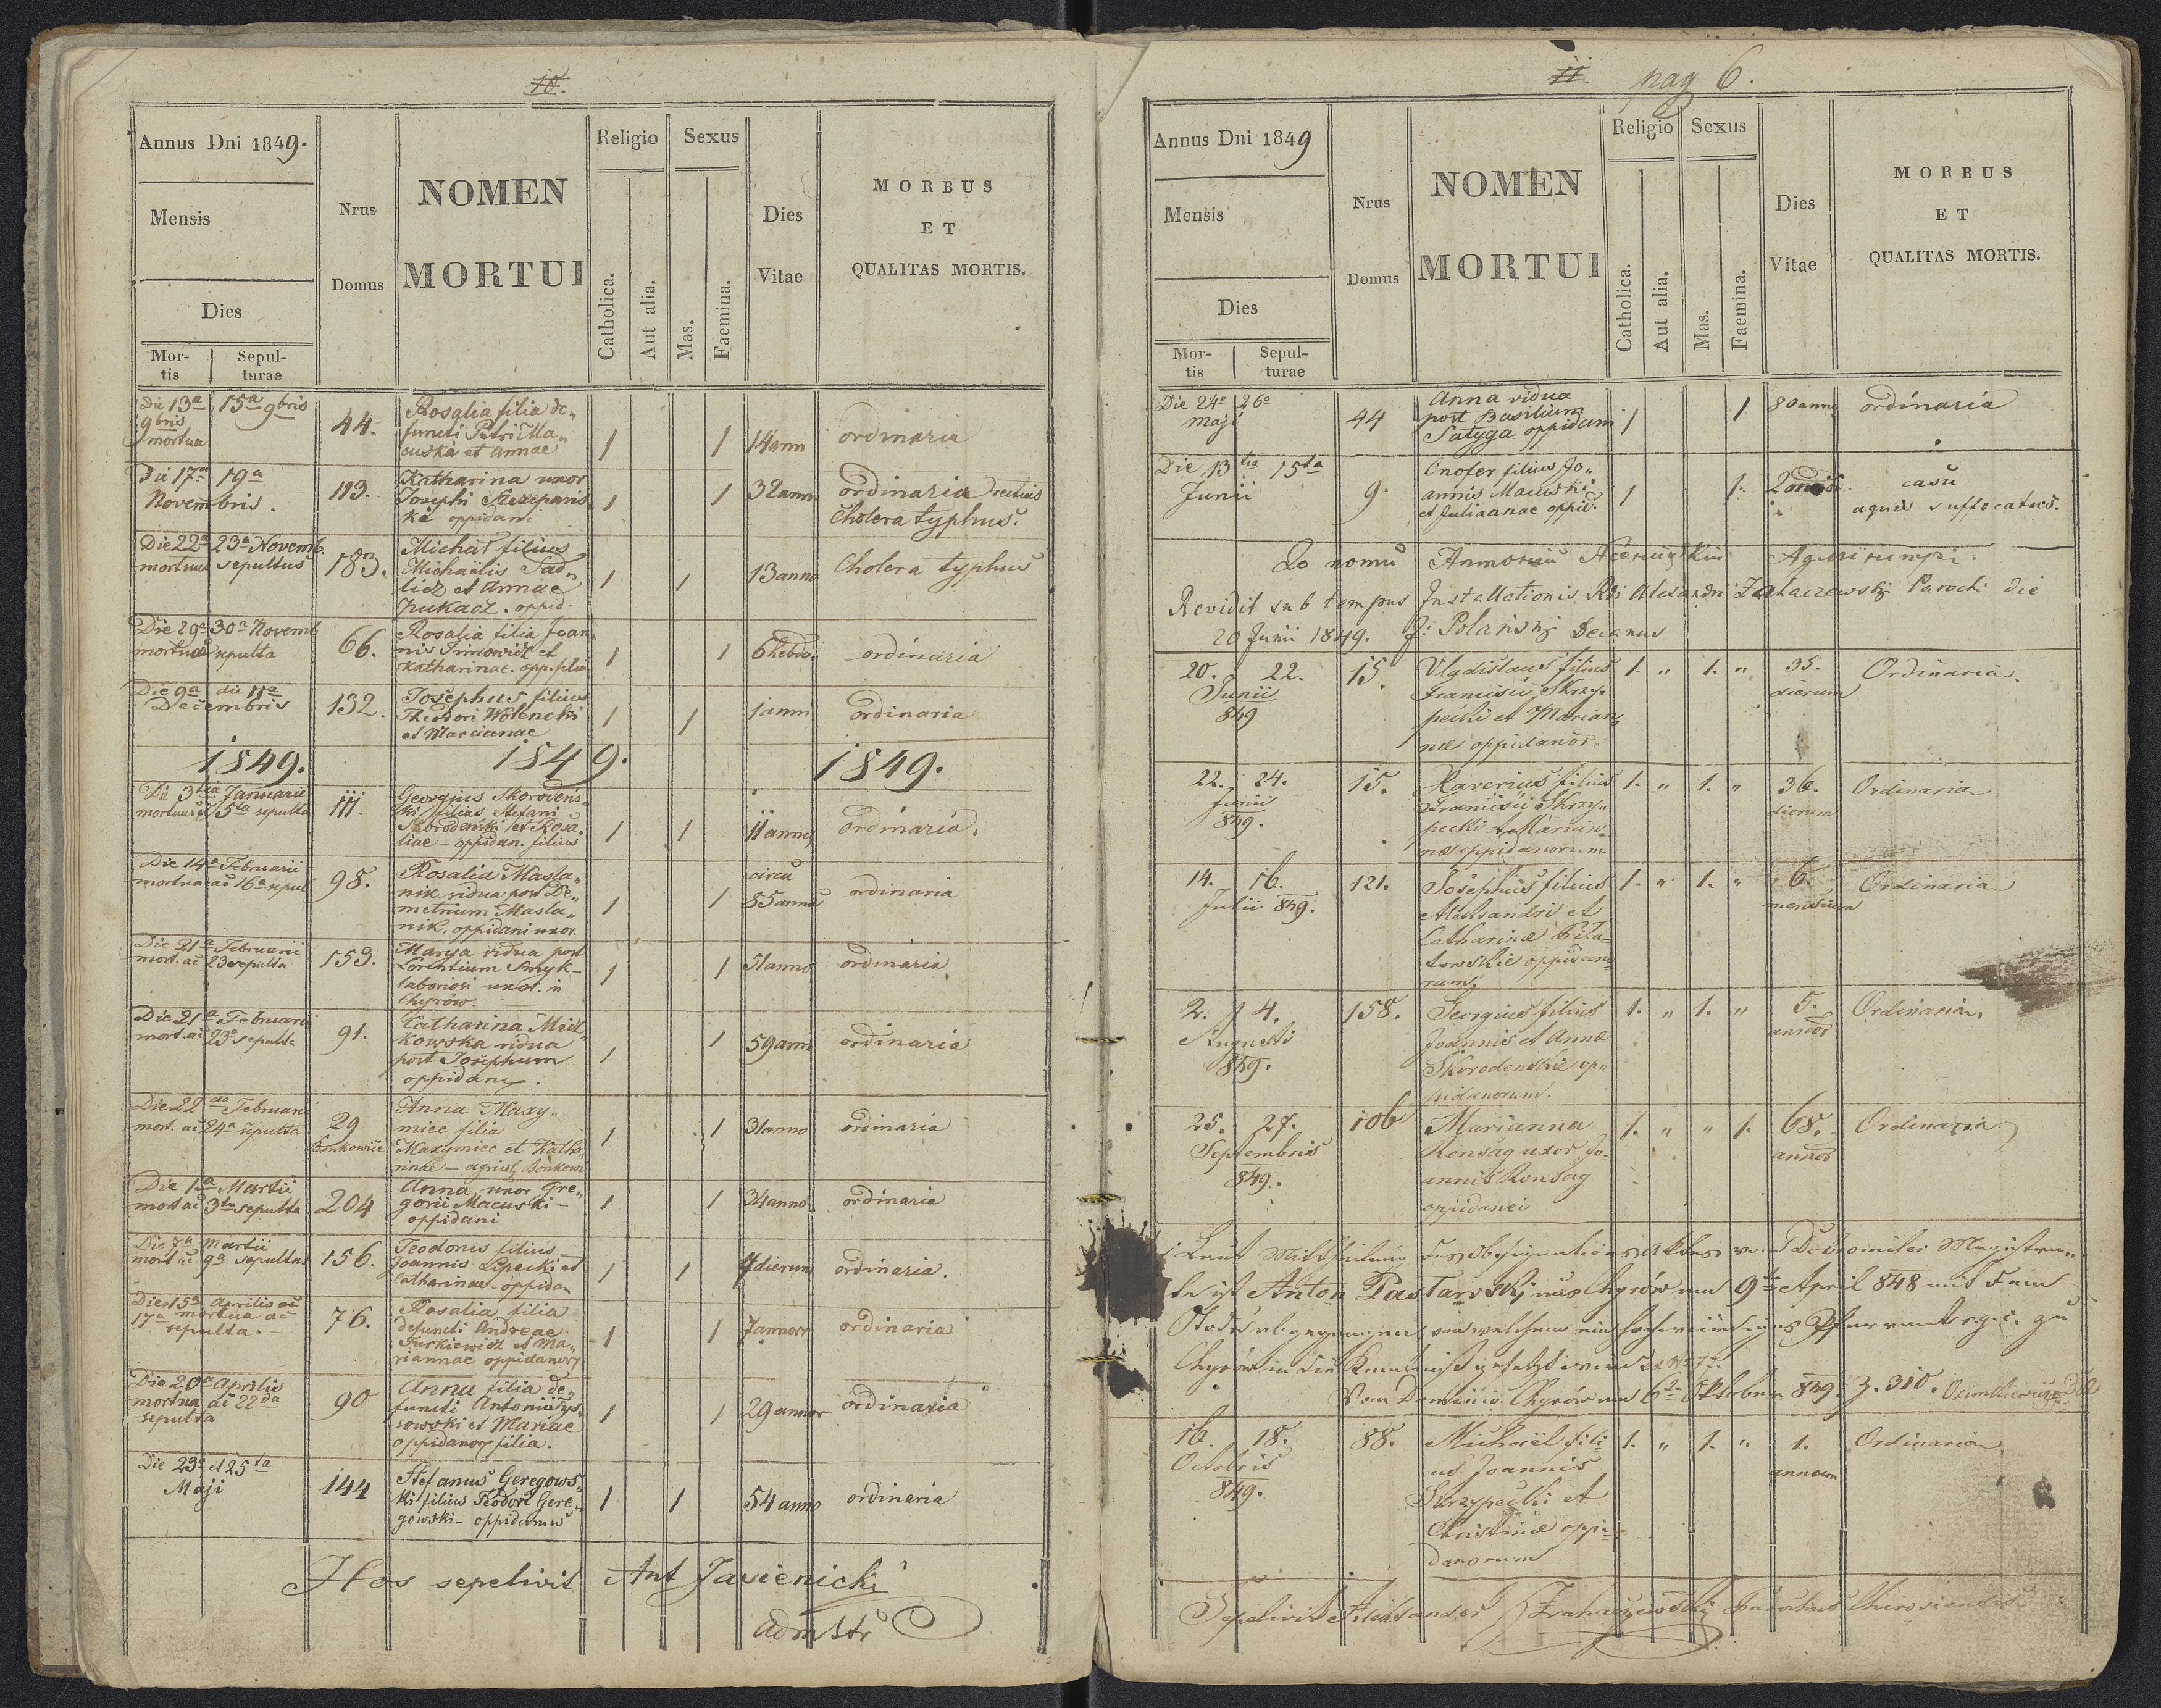 10.
Annus Dni 1849.
Mensis
Dies
Mor-
tis
Sepul-
turae
Nrus
Domus
NOMEN
MORTUI
Religio
Catholica.
Aut alia.
Sexus
Mas.
Faemina.
Dies
Vitae
MORBUS
ET
QUALITAS MORTIS.
Die 13a 15a 9bris
9bris
mortua
44.
Rosalia filia de„
functi Petri Ma„
cuska et Annae
1 1 14 ann ordinaria
Die 17a 19a
Novembris.
193.
Katharina uxor
Josephi Szczepanis
ki oppidani
1 1 32 ann
ordinaria rectius
Cholera typhus.
Die 22a 23a Novemb.
mortuus sepultus
183.
Michał filius
Michaelis Sad„
licz et Annae
Zukacz. oppid.
1 1 13 anno Cholera typhus
Die 29a 30a Novemb
mortua sepulta
66.
Rosalia filia Joan„
nis Simowicz et
Katharinae. opp. filia
1 1 6 hebd. ordinaria
Die 9a die 11a
Decembris
132.
Josephus filius
Theodori Wolencki
et Marcianae
1 1 1 anni ordinaria
1849. 1849. 1849.
Die 3tia Januarii
mortuus 5ta sepulta
111.
Georgius Skorodens„
ki filius Stefani
Skorodenski et Rosa„
liae - oppidan. filius
1 1 11 annos ordinaria.
Die 14a Februarii
mortua ac 16a sepul
98.
Rosalia Masla„
nik vidua post De„
metrium Masla„
nik, oppidani uxor.
1 1 circa
85 anno ordinaria
Die 21a Februarii
mort. ac 23 sepulta
159.
Marya vidua post
Lorentium Smyk-
laboriosi uxor. in
Chyrów.
1 1 51 anno ordinaria
Die 21a Februarii
mort. ac 23a sepulta
91.
Catharina Mict
kowska vidua
post Josephum
oppidany.
1 1 59 ann ordinaria
Die 22da Februarii
mort. ac 24a sepulta
29
Bonkowice
Anna Maxy„
miec filia
Maxymiec et Katha„
rinae - agricol Bonkowi
1 1 31 anno ordinaria
Die 1a Martii
mort ac 3tia sepulta
204
Anna uxor Gre„
gorii Macuski -
oppidani
1 1 34 anno ordinaria
Die 7a Martii
mort ac 9a sepultus
156.
Teodorus filius
Joannis Lipecki et
Catharinae. oppidan
1 1 4 dierum ordinaria.
Die 15a Aprilis ac
17a mortua ac
sepulta.
76.
Rosalia filia
defuncti Andreae
Turkiewicz et Ma„
riannae oppidanor
1 1 7 annor ordinaria
Die 20a Aprilis
mortua ac 22da
sepulta
90
Anna filia de„
functi Antonii Tys„
sowski et Mariae
oppidanor filia.
1 1 29 annor ordinaria
Die 23a et 25ta
Maji
144
Stefanus Geregows„
ki filius Teodori Gere„
gowski - oppidanus
1 1 54 anno ordinaria
Hos sepelivit Ant Javienicki
admstr
11. pag 6.
Annus Dni 1849
Mensis
Dies
Mor-
tis
Sepul-
turae
Nrus
Domus
NOMEN
MORTUI
Religio
Catholica.
Aut alia.
Sexus
Mas.
Faemina.
Dies
Vitae
MORBUS
ET
QUALITAS MORTIS.
Die 24a 26a
maji
44
Anna vidua
post Basilium
Satyga oppidani
1 1 80 anno ordinaria
Die 13tia 15ta
Junii
9.
Onofer filius Jo„
annis Macuski
et Juliaanae oppid.
1 1. 2
casu
aquis suffocatus.
Revidit sub tempus Installationis Rdi Alexandri Parochi die
20 Junii 1849. J: Polański Decanus
20. 22.
Junii
849
15.
Vladislaus filius
Francisci Skrzy„
pecki et Marian„
nae oppidanor.
1. „ 1. „ 35.
dierum
Ordinaria.
22. 24.
Junii
849.
15.
Xaverius filius
Francisci Skrzy„
pecki et Marian„
nae oppidanorum
1. „ 1. „ 36.
dierum
Ordinaria
14. 16.
Julii 849.
121.
Josephus filius
Aleksandri et
Catharinae Pila-
towskie oppidano
rum
1. „ 1. „ 6.
mensium
Ordinaria
2. 4.
Augusti
849.
158.
Georgius filius
Joannis et Annae
Skorodenskie op„
pidanorum.
1. „ 1. „ 5.
annor
Ordinaria.
25. 27.
Septembris
849.
106
Marianna
Konsag uxor Jo„
annis Konsag
oppidanei
1. „ „ 1. 68.
annor
Ordinaria
Laut Mittheilung des Obsignations Aktes vom Dobromiler Magistra„
te ist Anton Pastaroskj aus Chyrów am 9ten April 848 mit dem
Tode abgegangen, von welchem ein hochwürdiges Pfarramt r.g.c. zu
Chyrów in die Kenntniß gesetzt wird
Vom Dominio Chyrów am 6ten Oktober 849. Z. 310.
16. 18.
Octobris
849.
88.
Michaël fili-
us Joannis
Skrzypecki et
Christinae oppi-
danorum
1. „ 1. „ 1.
annum
Ordinaria
Sepelivit Aleksander Parochus Chiroviensis